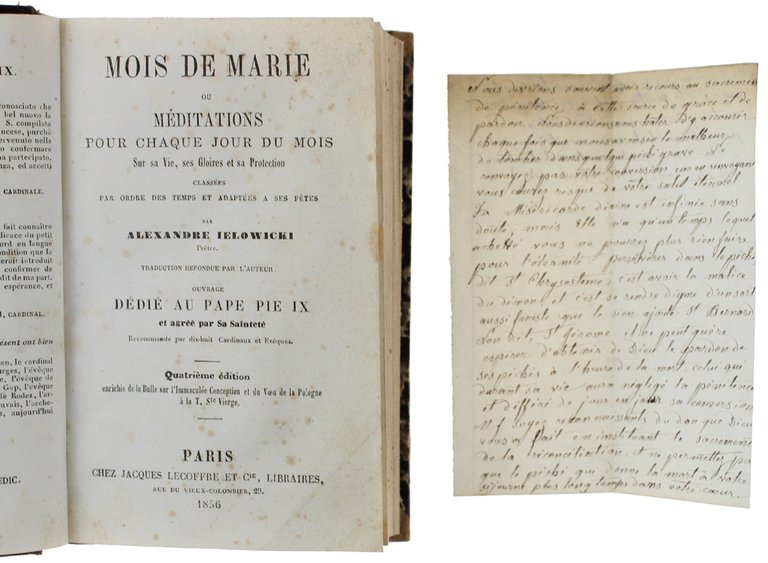 IX.
conosciuto che
bel nuovo la
S. compilato
ncese, purchè
ervenuto nella
o confermare
na partecipato.
nza, ed accetti
CARDINALE.
fait connaître
dicace du petit
ord en langue
ondition que la
erait introduit
confirmer de
dit de ma part.
espérance, et
I, CARDINAL.
ésent ont bien
en, le cardinal
urges, l'évêque
, l'évêque de
Gap, l'évêque
le Rodez, l'ar-
auvais, l'arche-
s, aujourd'hui
EDIC.
MOIS DE MARIE
OU
MÉDITATIONS
POUR CHAQUE JOUR DU MOIS
Sur sa Vie, ses Gloires et sa Protection
CLASSÉES
PAR ORDRE DES TEMPS ET ADAPTÉES A SES FÊTES
PAR
ALEXANDRE IELOWICKI
Prêtre.
TRADUCTION REFONDUE PAR L'AUTEUR.
OUVRAGE
DÉDIÉ AU PAPE PIE IX
et agréé par Sa Sainteté
Recommandé par dix-huit Cardinaux et Evêques.
Quatrième édition
enrichie de la Bulle sur l'Immaculée Conception et du Vœu de la Pologne
à la T. Ste Vierge.
PARIS
CHEZ JACQUES LECOFFRE ET Cie, LIBRAIRES,
RUE DU VIEUX-COLOMBIER, 29.
1856
Nous devrions souvent avoir recours au sacremen
de pénitence, à cette source de grâce et de
pardon. Nous devrions nous hâter d'y accourir
chaque fois que nous avons eu le malheur
de tomber dans quelque péché grave. Ne
renvoyez pas votre conversion car en renvoyant
vous courez risque de votre salut éternel
La Miséricorde divine est infinie sans
doute, mais Elle n'a qu'un temps lequel
achetté vous ne pourrez plus rien faire
pour l'éternité. persévérer dans le péché
dit St Chrysostome, c'est avoir la malice
du démon, et c'est se rendre digne d'un sort
aussi funeste que le sien ajoute St Bernard
Non dit, St Jérome, il ne peut guère
espérer d'obtenir de Dieu le pardon de
ses péchés à l'heure de la mort, celui qui
durant sa vie aura négligé la pénitence
et différé de jour en jour sa conversion
soyez reconnaissants du don que Dieu
vous a fait en instituant le sacrement
de la réconciliation, et ne permettez pas
que le péché qui donne la mort à votre
séjourne plus long temps dans votre cœur.